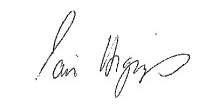 Iain Higgins